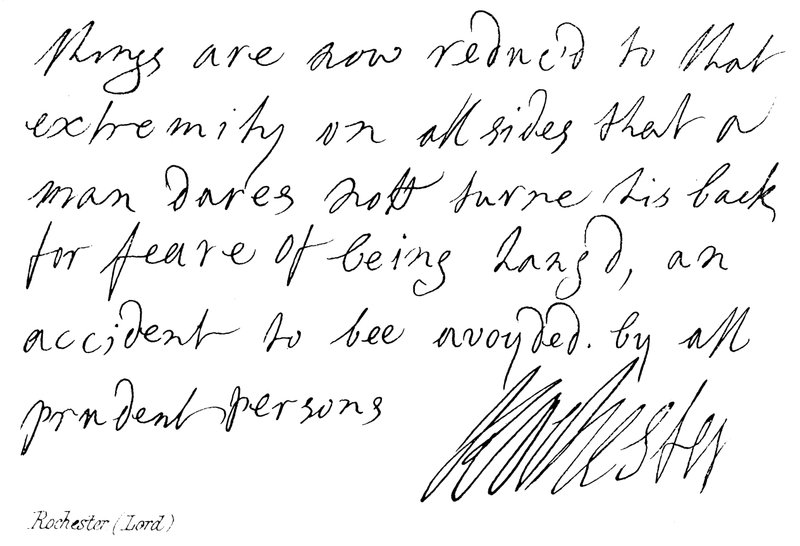 things are now reduc'd to that
extremity on all sides that a
man dares nott turne his back
for feare of being hang'd, an
accident to bee avoyded. by all
prudent persons
Rochester
Rochester (Lord)